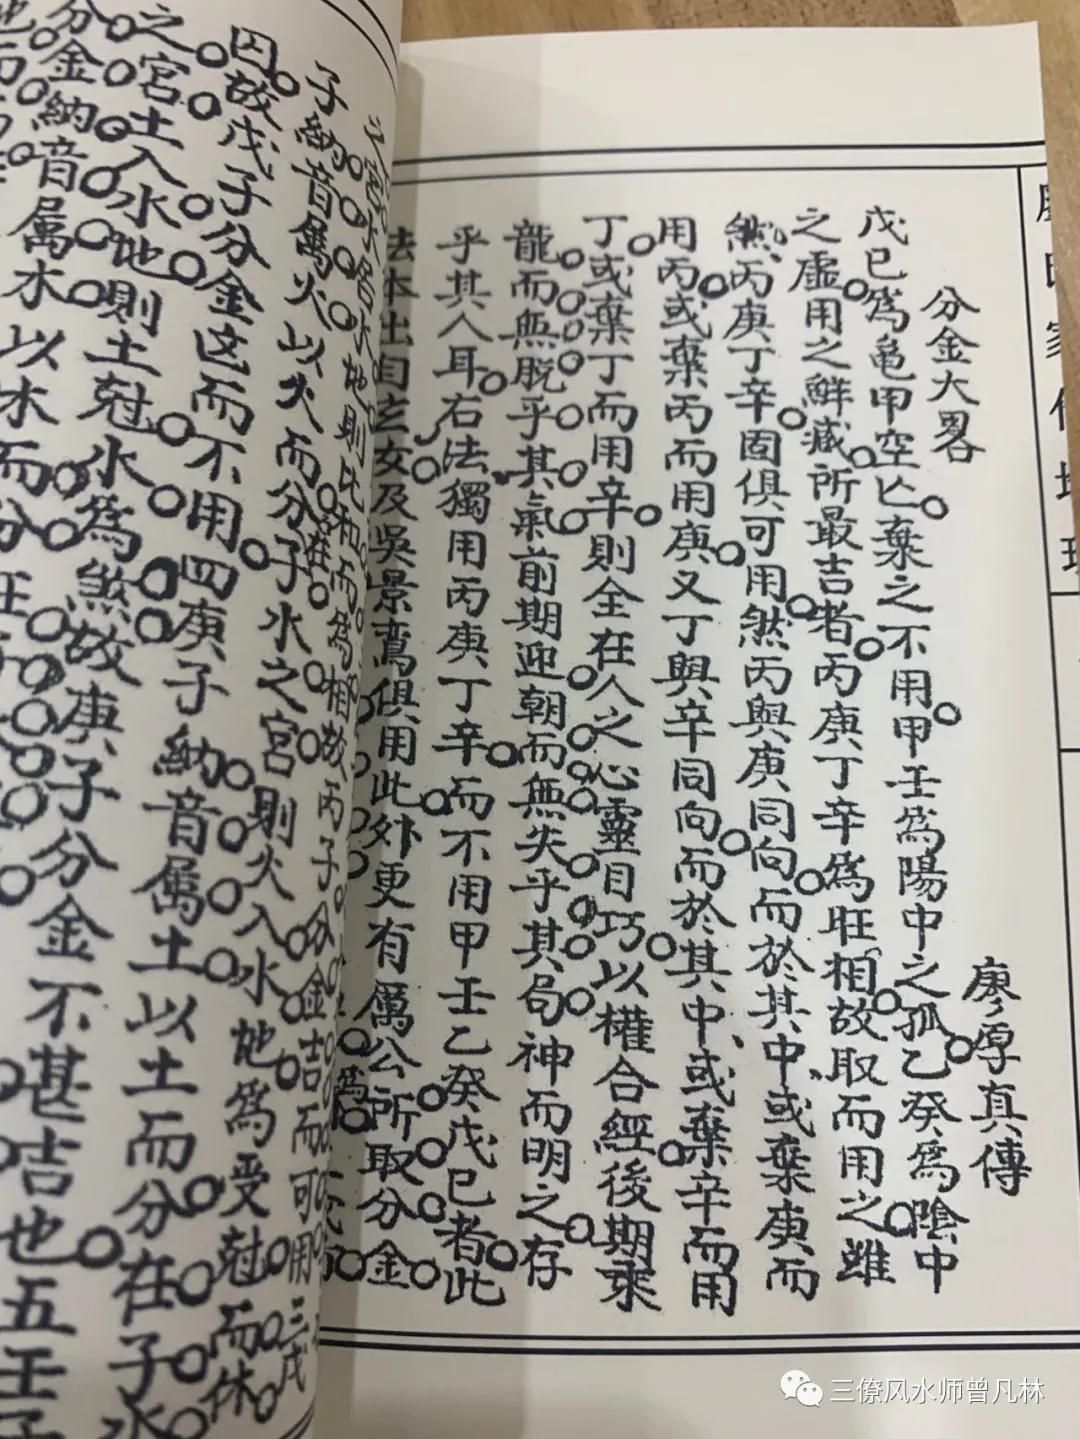 分金大畧
廖厚真傳
戊己爲龜甲空亡棄之不用甲壬爲陽中之孤乙癸爲陰中
之虛用之鮮臧所最吉者丙庚丁辛爲旺相故取而用之雖
然丙庚丁辛固俱可用然丙與庚同向而於其中或棄庚而
用丙或棄丙而用庚又丁與辛同向而於其中或棄辛而用
丁或棄丁而用辛則全在人之心靈目巧以權合經後期乘
龍而無脫乎其氣前期迎朝而無失乎其局神而明之存
乎其人耳右法獨用丙庚丁辛而不用甲壬乙癸戊己者此
法本出自玄女及吳景鸞俱用此外更有厲公所取分金
之宮
子納音屬火以火而分在子水之宮則火入水地爲受尅而休
囚故戊子分金这而不用四庚子納音屬土以土而分在子水
之宮土入水地則土尅水爲煞故庚子分金不甚吉也五壬子
分金納音屬木以木而分
三僚风水师曾凡林